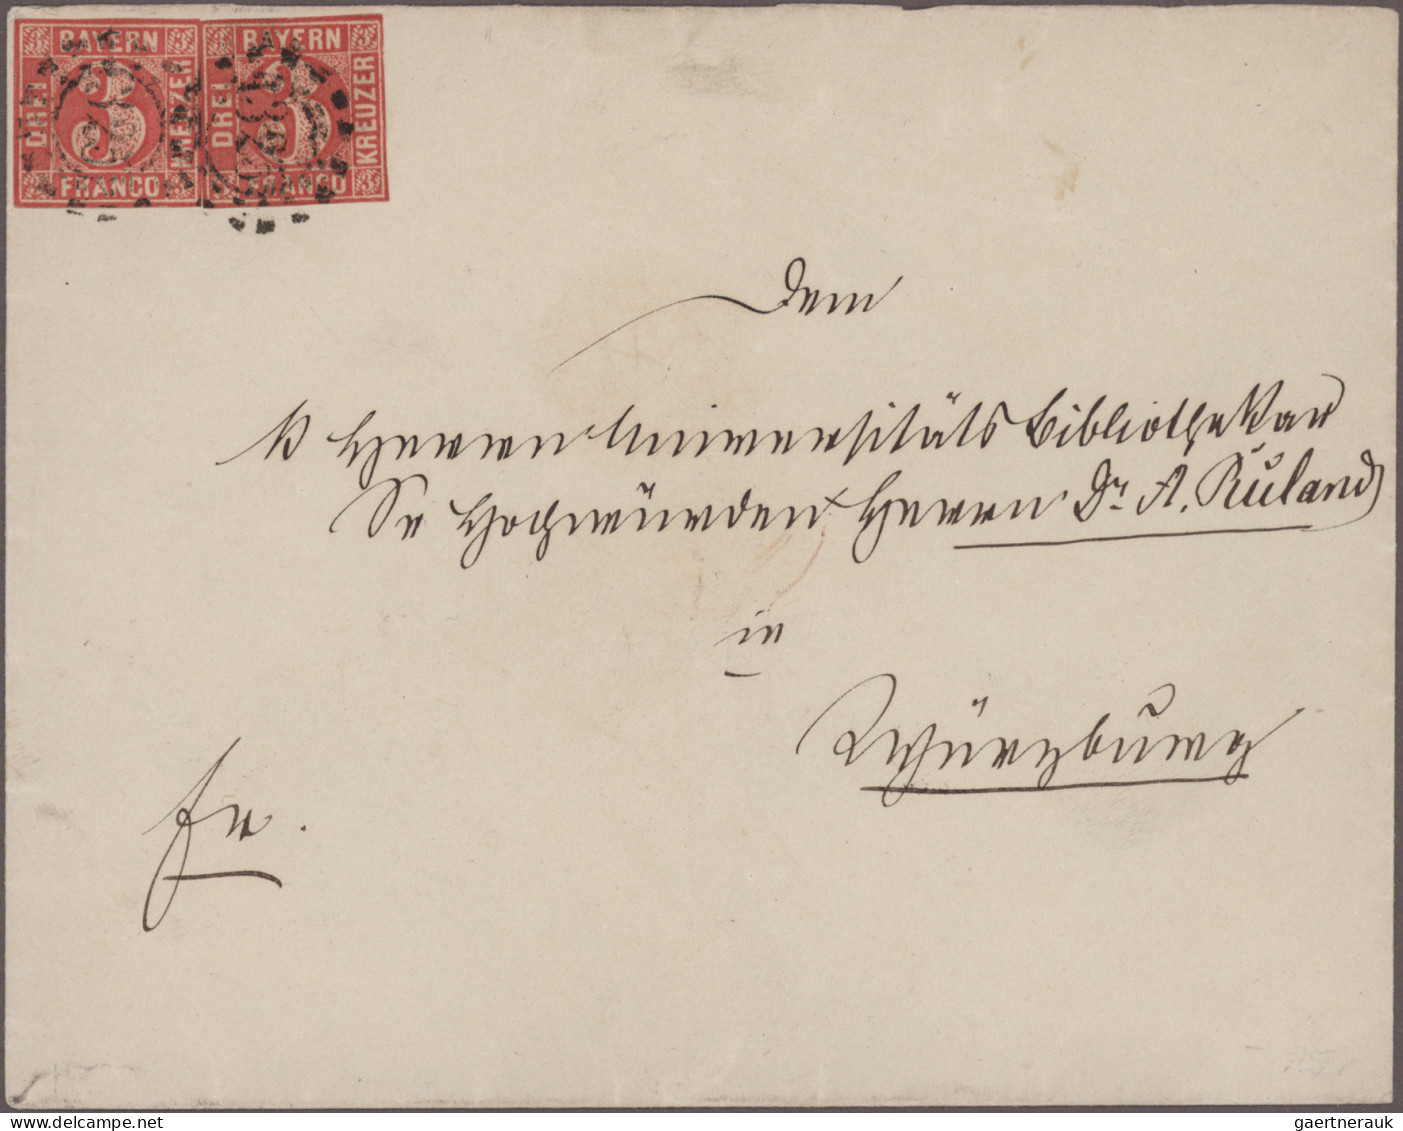 BAYERN BAYERN
DREI 3 KREUZER DREI 3 KREUZER
FRANCO FRANCO
Dem
K Herrn Universitäts Bibliothekar
Sr Hochwürden Herrn Dr. A. Ruland
in
Würzburg
fr.
gaertnerauk